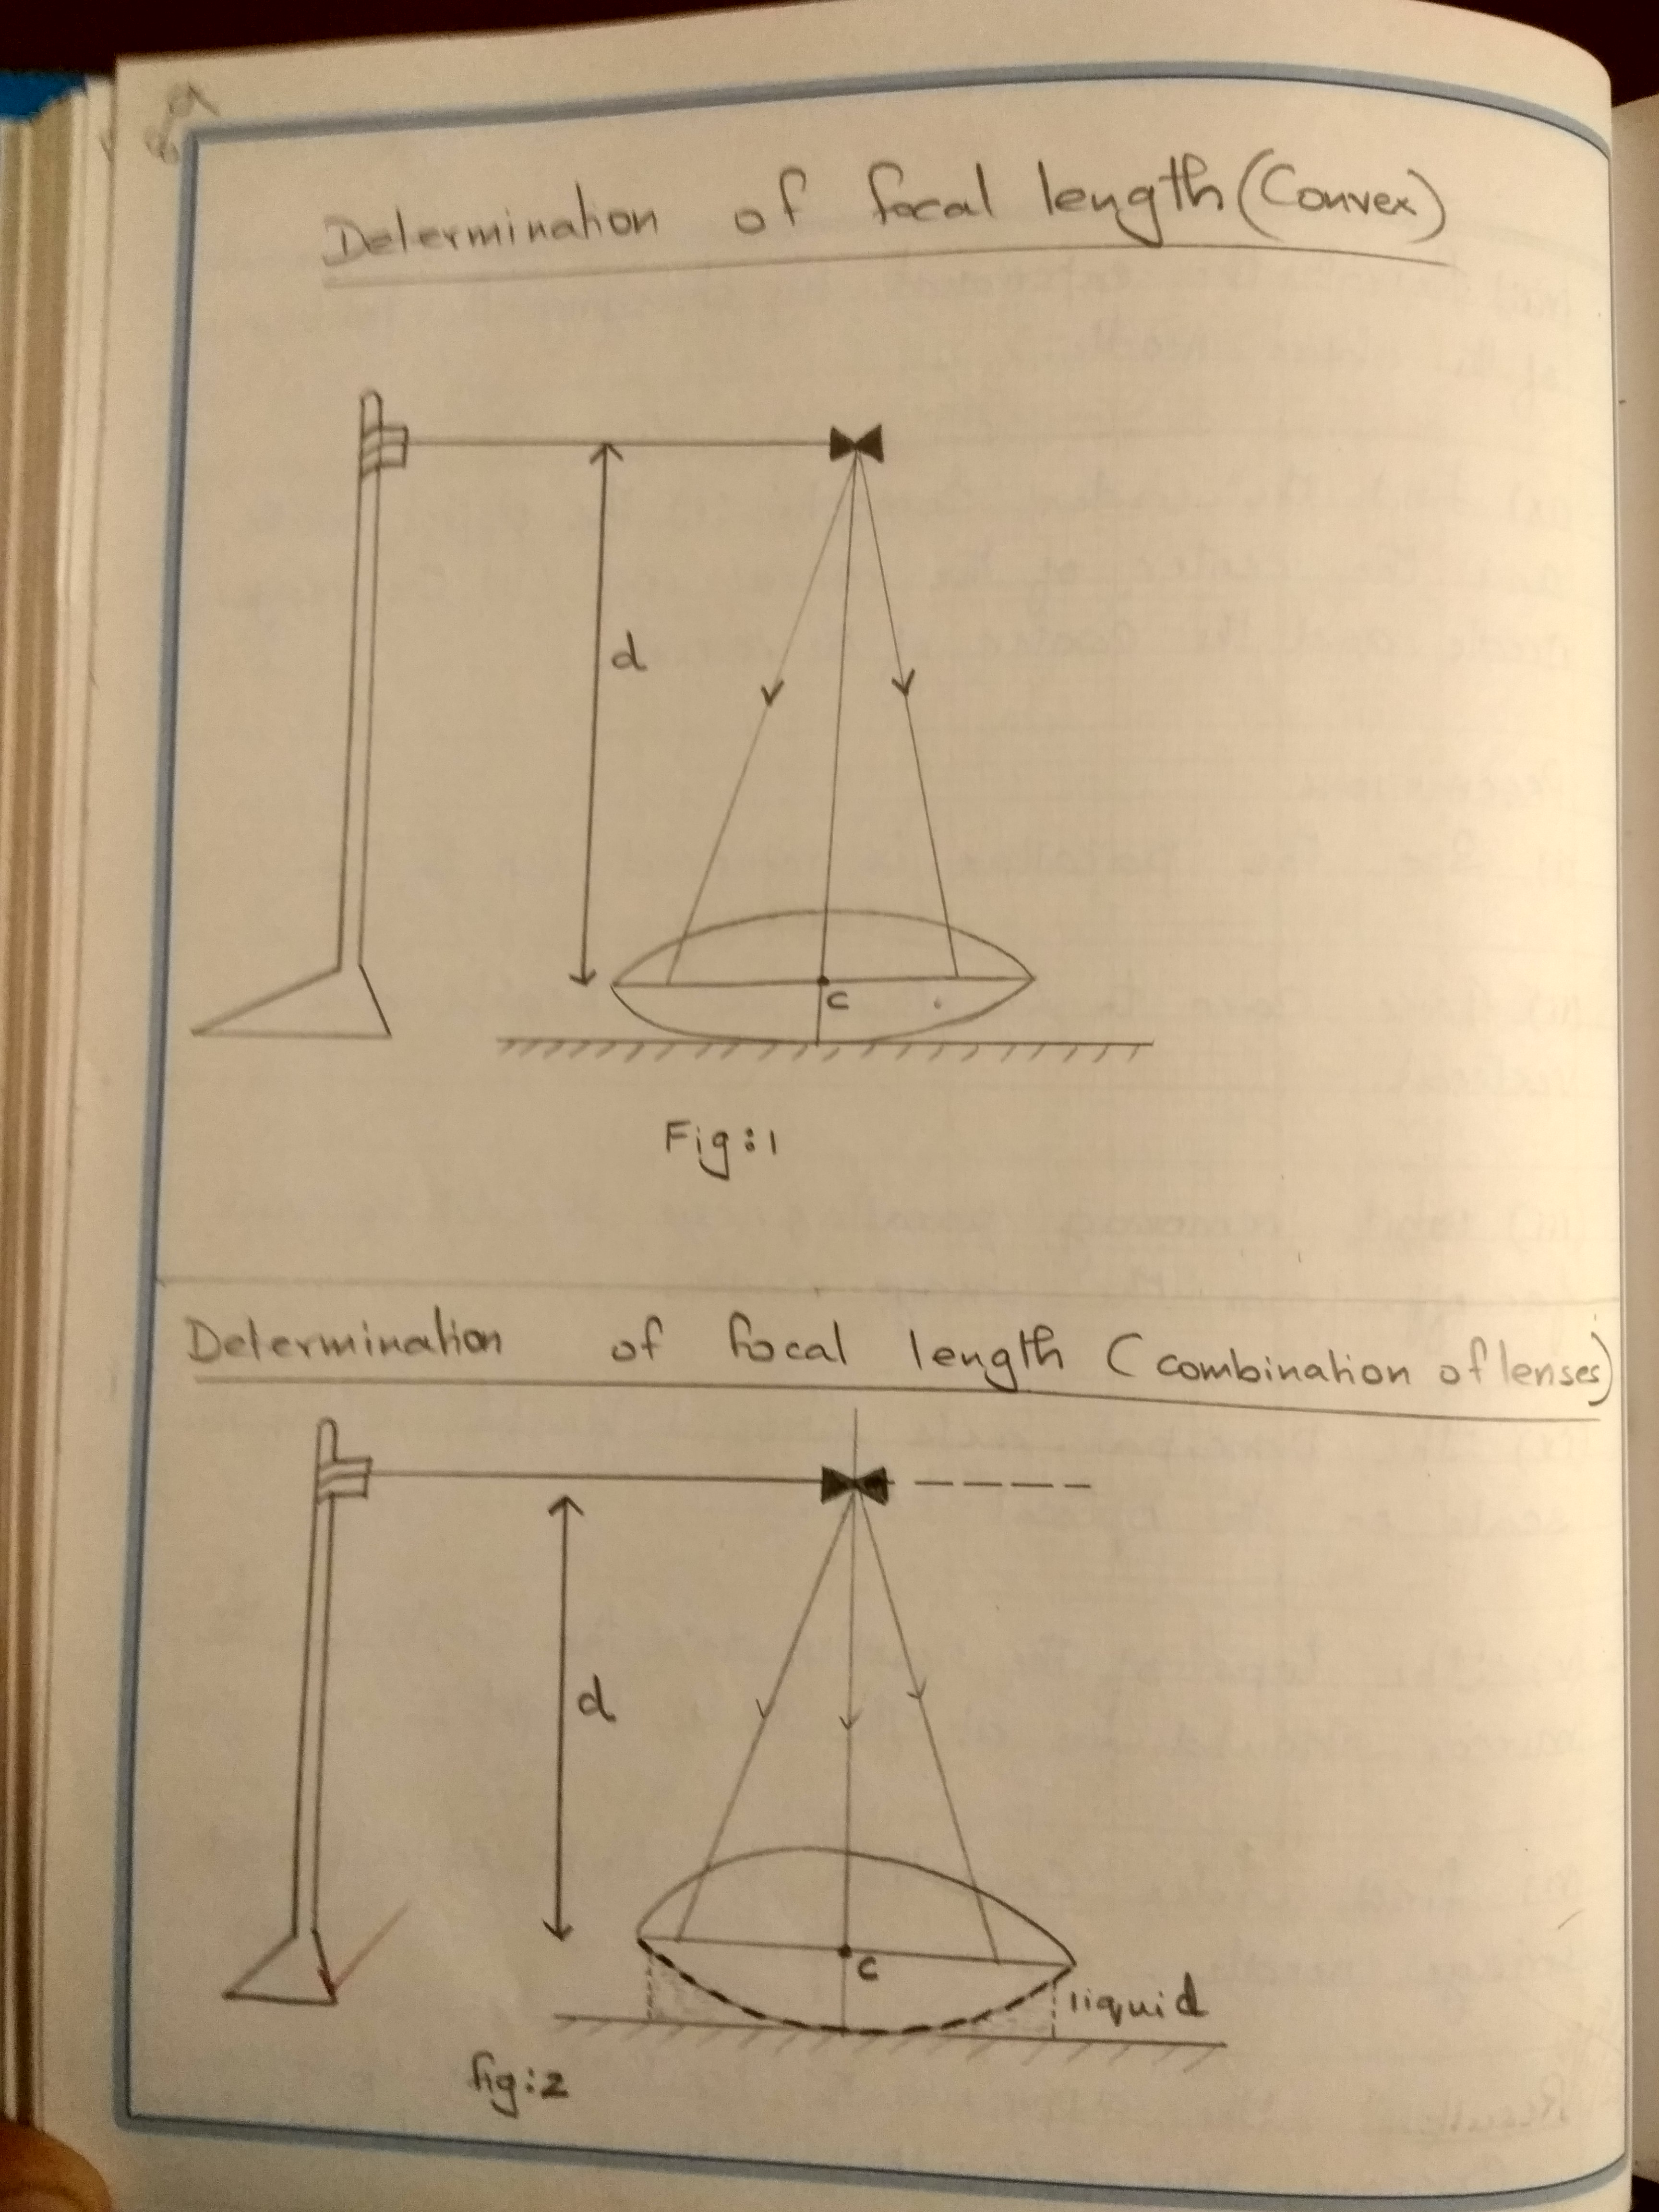 Determination of focal length (Convex)
d
c
Fig:1
Determination of focal length (combination of lenses)
d
c
liquid
fig:2